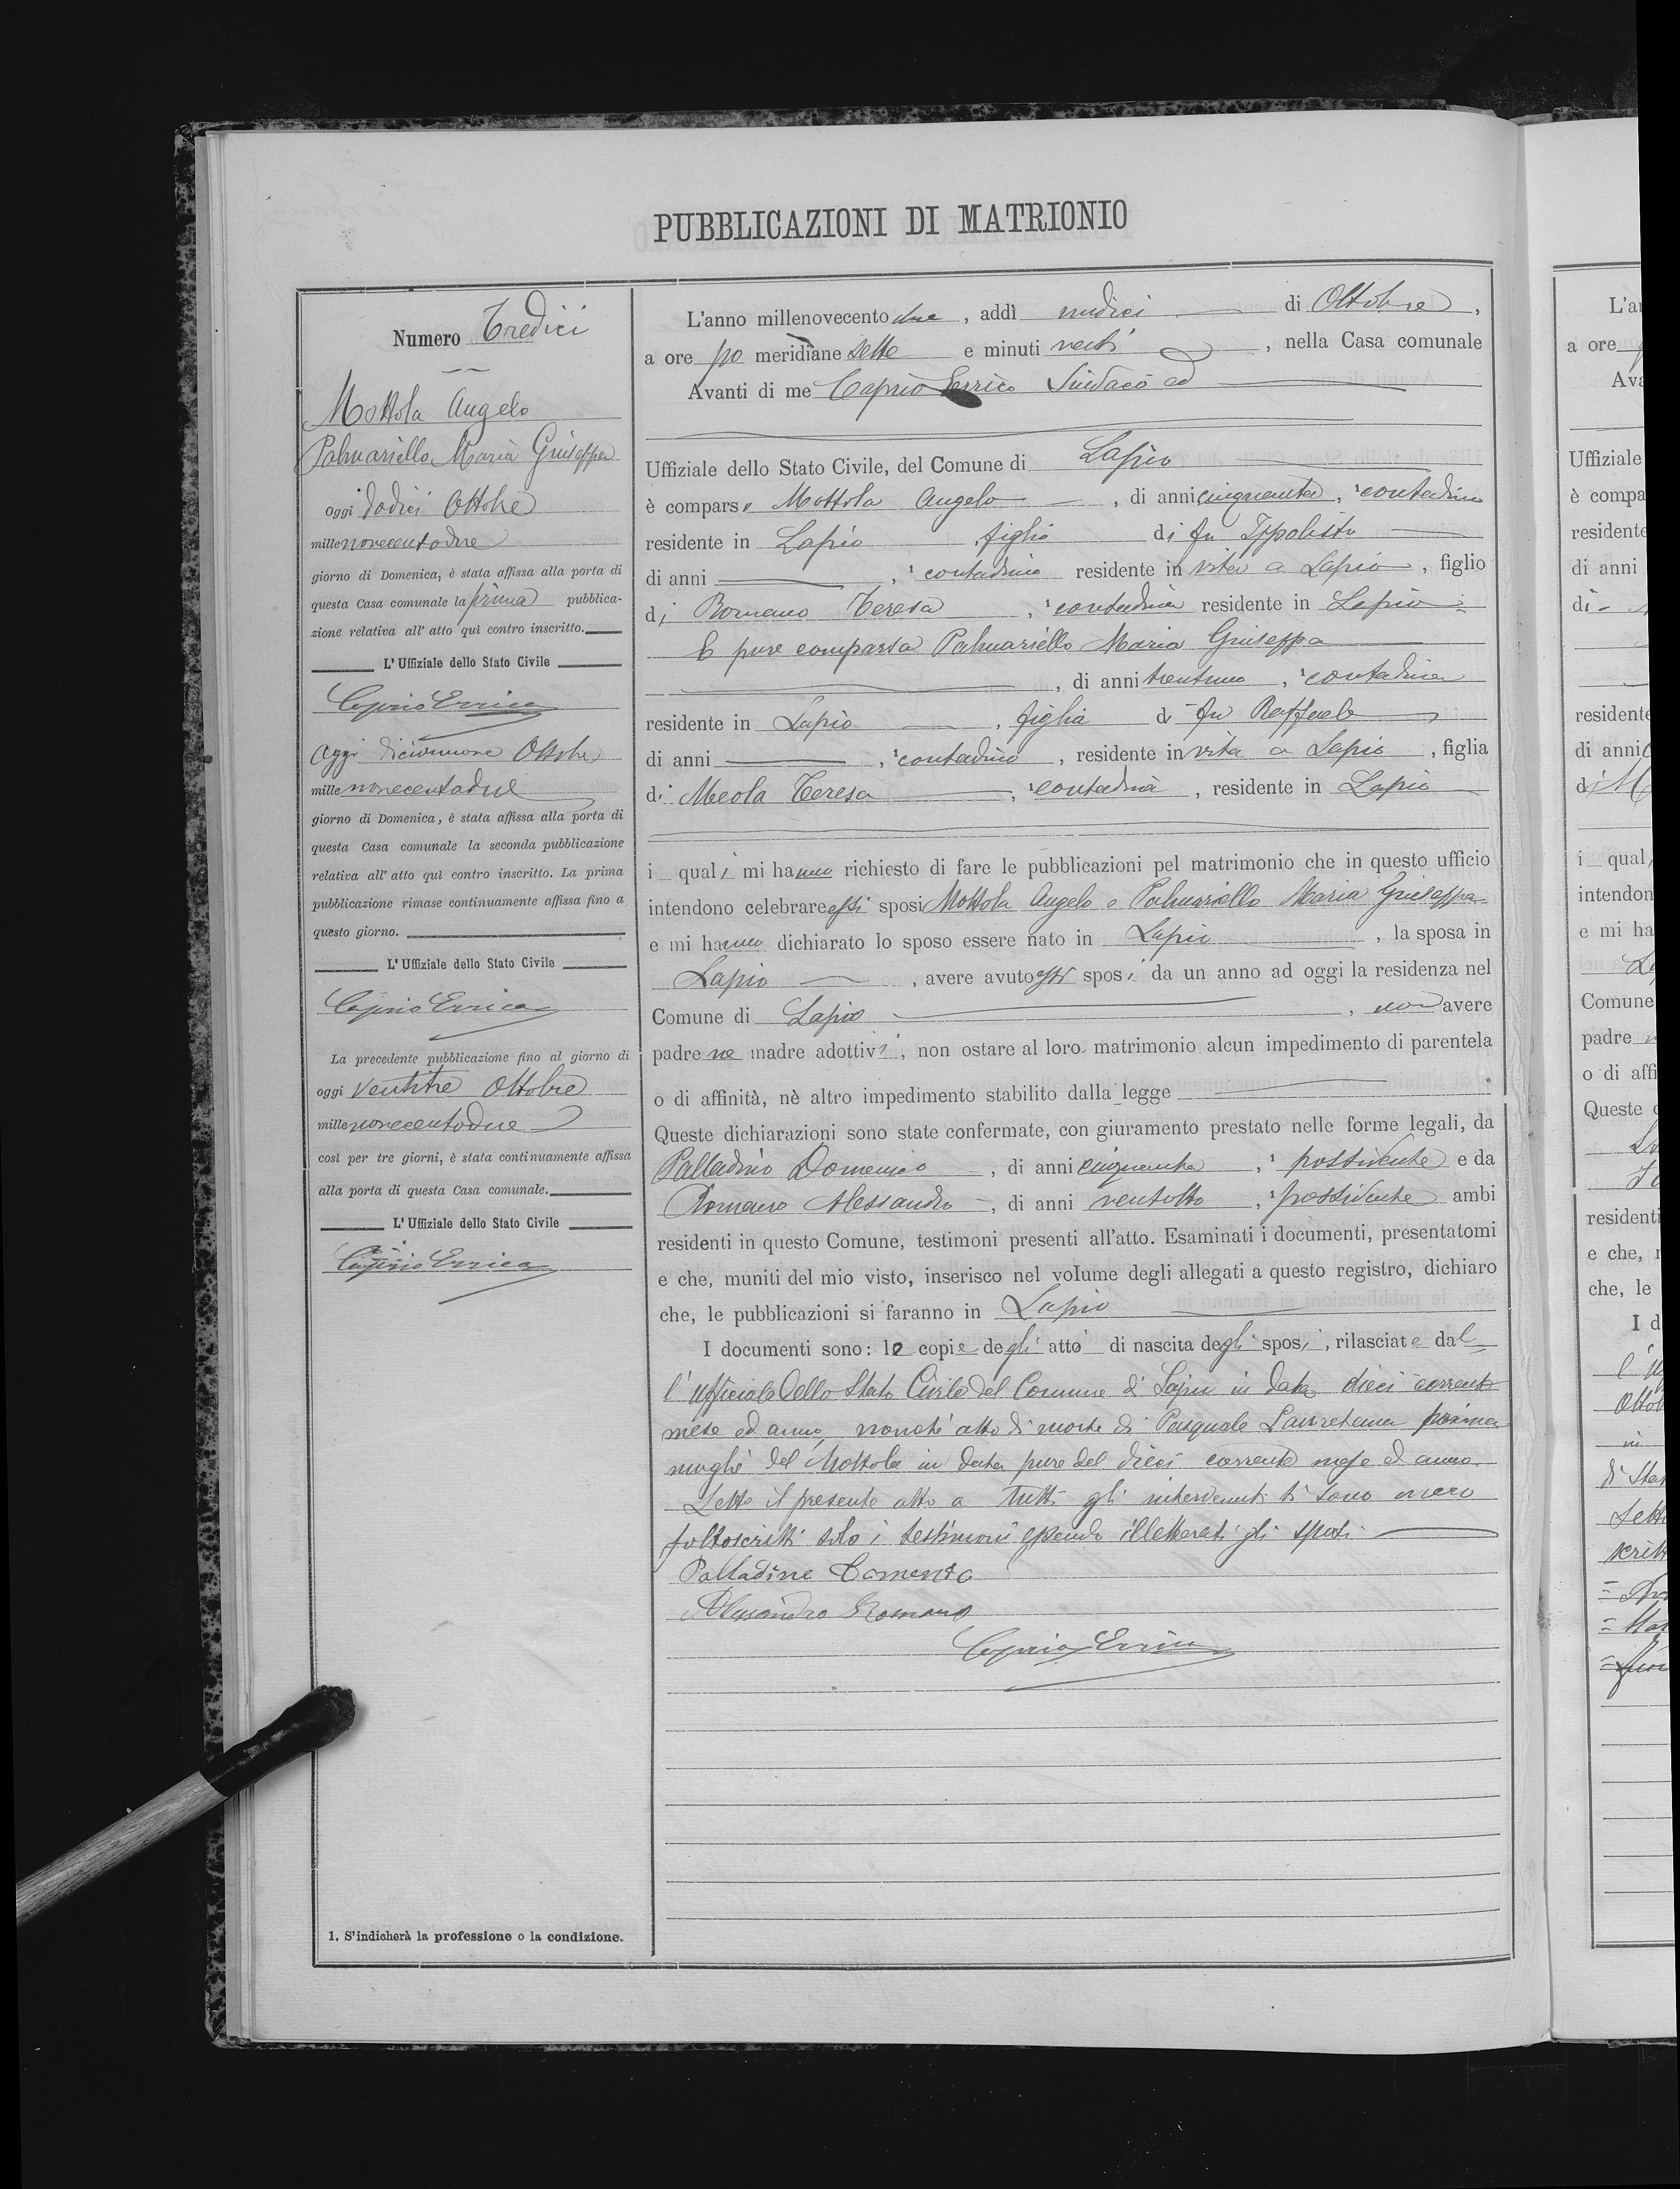 PUBBLICAZIONI DI MATRIONIO
Numero Tredici
Mottola Angelo
Palmariello Maria Giuseppa
oggi dodici Ottobre
mille novecentodue
giorno di Domenica, è stata affissa alla porta di
questa Casa comunale la prima pubblica-
zione relativa all' atto quì contro inscritto.
L' Uffiziale dello Stato Civile
Caprio Errico
Oggi diciannove Ottobre
mille novecentodue
giorno di Domenica, è stata affissa alla porta di
questa Casa comunale la seconda pubblicazione
relativa all' atto quì contro inscritto. La prima
pubblicazione rimase continuamente affissa fino a
questo giorno.
L' Uffiziale dello Stato Civile
Caprio Errico
La precedente pubblicazione fino al giorno di
oggi ventitre Ottobre
mille novecentodue
così per tre giorni, è stata continuamente affissa
alla porta di questa Casa comunale.
L' Uffiziale dello Stato Civile
Caprio Errico
1. S'indicherà la professione o la condizione.
L'anno millenovecento due, addì undici di Ottobre,
a ore po meridiane sette e minuti venti, nella Casa comunale
Avanti di me Caprio Errico Sindaco ed
Uffiziale dello Stato Civile, del Comune di Lapio
è comparso Mottola Angelo, di anni cinquanta, ¹ contadino
residente in Lapio, figlio di fu Ippolisto
di anni , ¹ contadino residente in vita a Lapio, figlio
di Romano Teresa, ¹ contadina residente in Lapio
E pure comparsa Palmariello Maria Giuseppa
, di anni trentuno, ¹ contadina
residente in Lapio, figlia di fu Raffaele
di anni , ¹ contadino, residente in vita a Lapio, figlia
di Meola Teresa, ¹ contadina, residente in Lapio
i quali mi hanno richiesto di fare le pubblicazioni pel matrimonio che in questo ufficio
intendono celebrare essi sposi Mottola Angelo e Palmariello Maria Giuseppa
e mi hanno dichiarato lo sposo essere nato in Lapio, la sposa in
Lapio, avere avuto essi sposi da un anno ad oggi la residenza nel
Comune di Lapio, non avere
padre ne madre adottivi, non ostare al loro matrimonio alcun impedimento di parentela
o di affinità, nè altro impedimento stabilito dalla legge .
Queste dichiarazioni sono state confermate, con giuramento prestato nelle forme legali, da
Palladino Domenico, di anni cinquanta, ¹ possidente e da
Romano Alessandro, di anni ventotto, ¹ possidente ambi
residenti in questo Comune, testimoni presenti all'atto. Esaminati i documenti, presentatomi
e che, muniti del mio visto, inserisco nel volume degli allegati a questo registro, dichiaro
che, le pubblicazioni si faranno in Lapio
I documenti sono: le copie degli atto di nascita degli sposi, rilasciate dal
l'Ufficiale dello Stato Civile del Comune di Lapio in data dieci corrente
mese ed anno, nonchè atto di morte di Pasquale Lauretana prima
moglie del Mottola in data pure del dieci corrente mese ed anno.
Letto il presente atto a tutti gli intervenuti si sono meco
sottoscritti solo i testimoni essendo illetterati gli sposi
Palladine Comenico
Alessandro Romano
Caprio Errico
L'a
a ore
Ava
Uffiziale
è compa
residente
di anni
di
residente
di anni
di M
i qual
intendon
e mi ha
Comune
padre
o di affi
Queste
residenti
e che,
che, le
I d